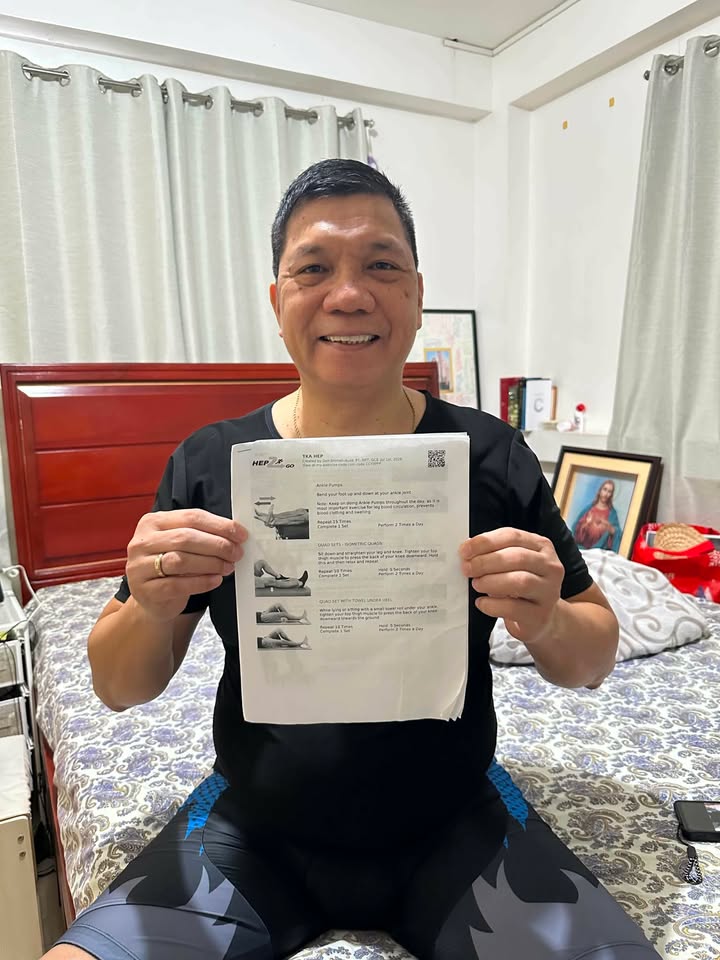 HEP2GO
TKA HEP
Ankle Pumps
Bend your foot up and down at your ankle joint
Note: Keep on doing Ankle Pumps throughout the day, as it is
most important exercise for leg blood circulation, prevents
blood clotting and swelling
Repeat 25 Times
Complete 2 Set Perform 2 Times a Day
QUAD SETS - ISOMETRIC QUADS
Sit down and straighten your leg and knee. Tighten your top
thigh muscle to press the back of your knee downward. Hold
this and then relax and repeat
Repeat 10 Times Hold 5 Seconds
Complete 2 Set Perform 2 Times a Day
QUAD SET WITH TOWEL UNDER HEEL
While lying or sitting with a small towel roll under your ankle,
tighten your top thigh muscle to press the back of your knee
downward towards the ground
Repeat 10 Times Hold 5 Seconds
Complete 1 Set Perform 2 Times a Day
C